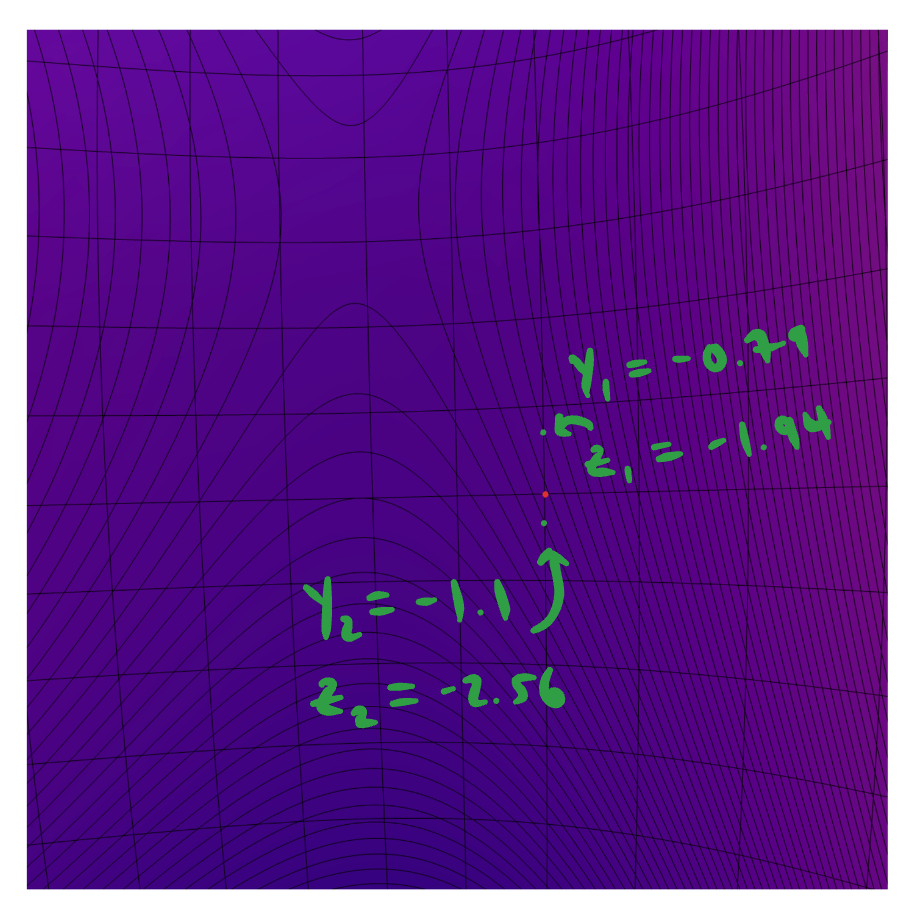 Y₁ = -0.79
z₁ = -1.94
Y₂ = -1.1
z₂ = -2.56